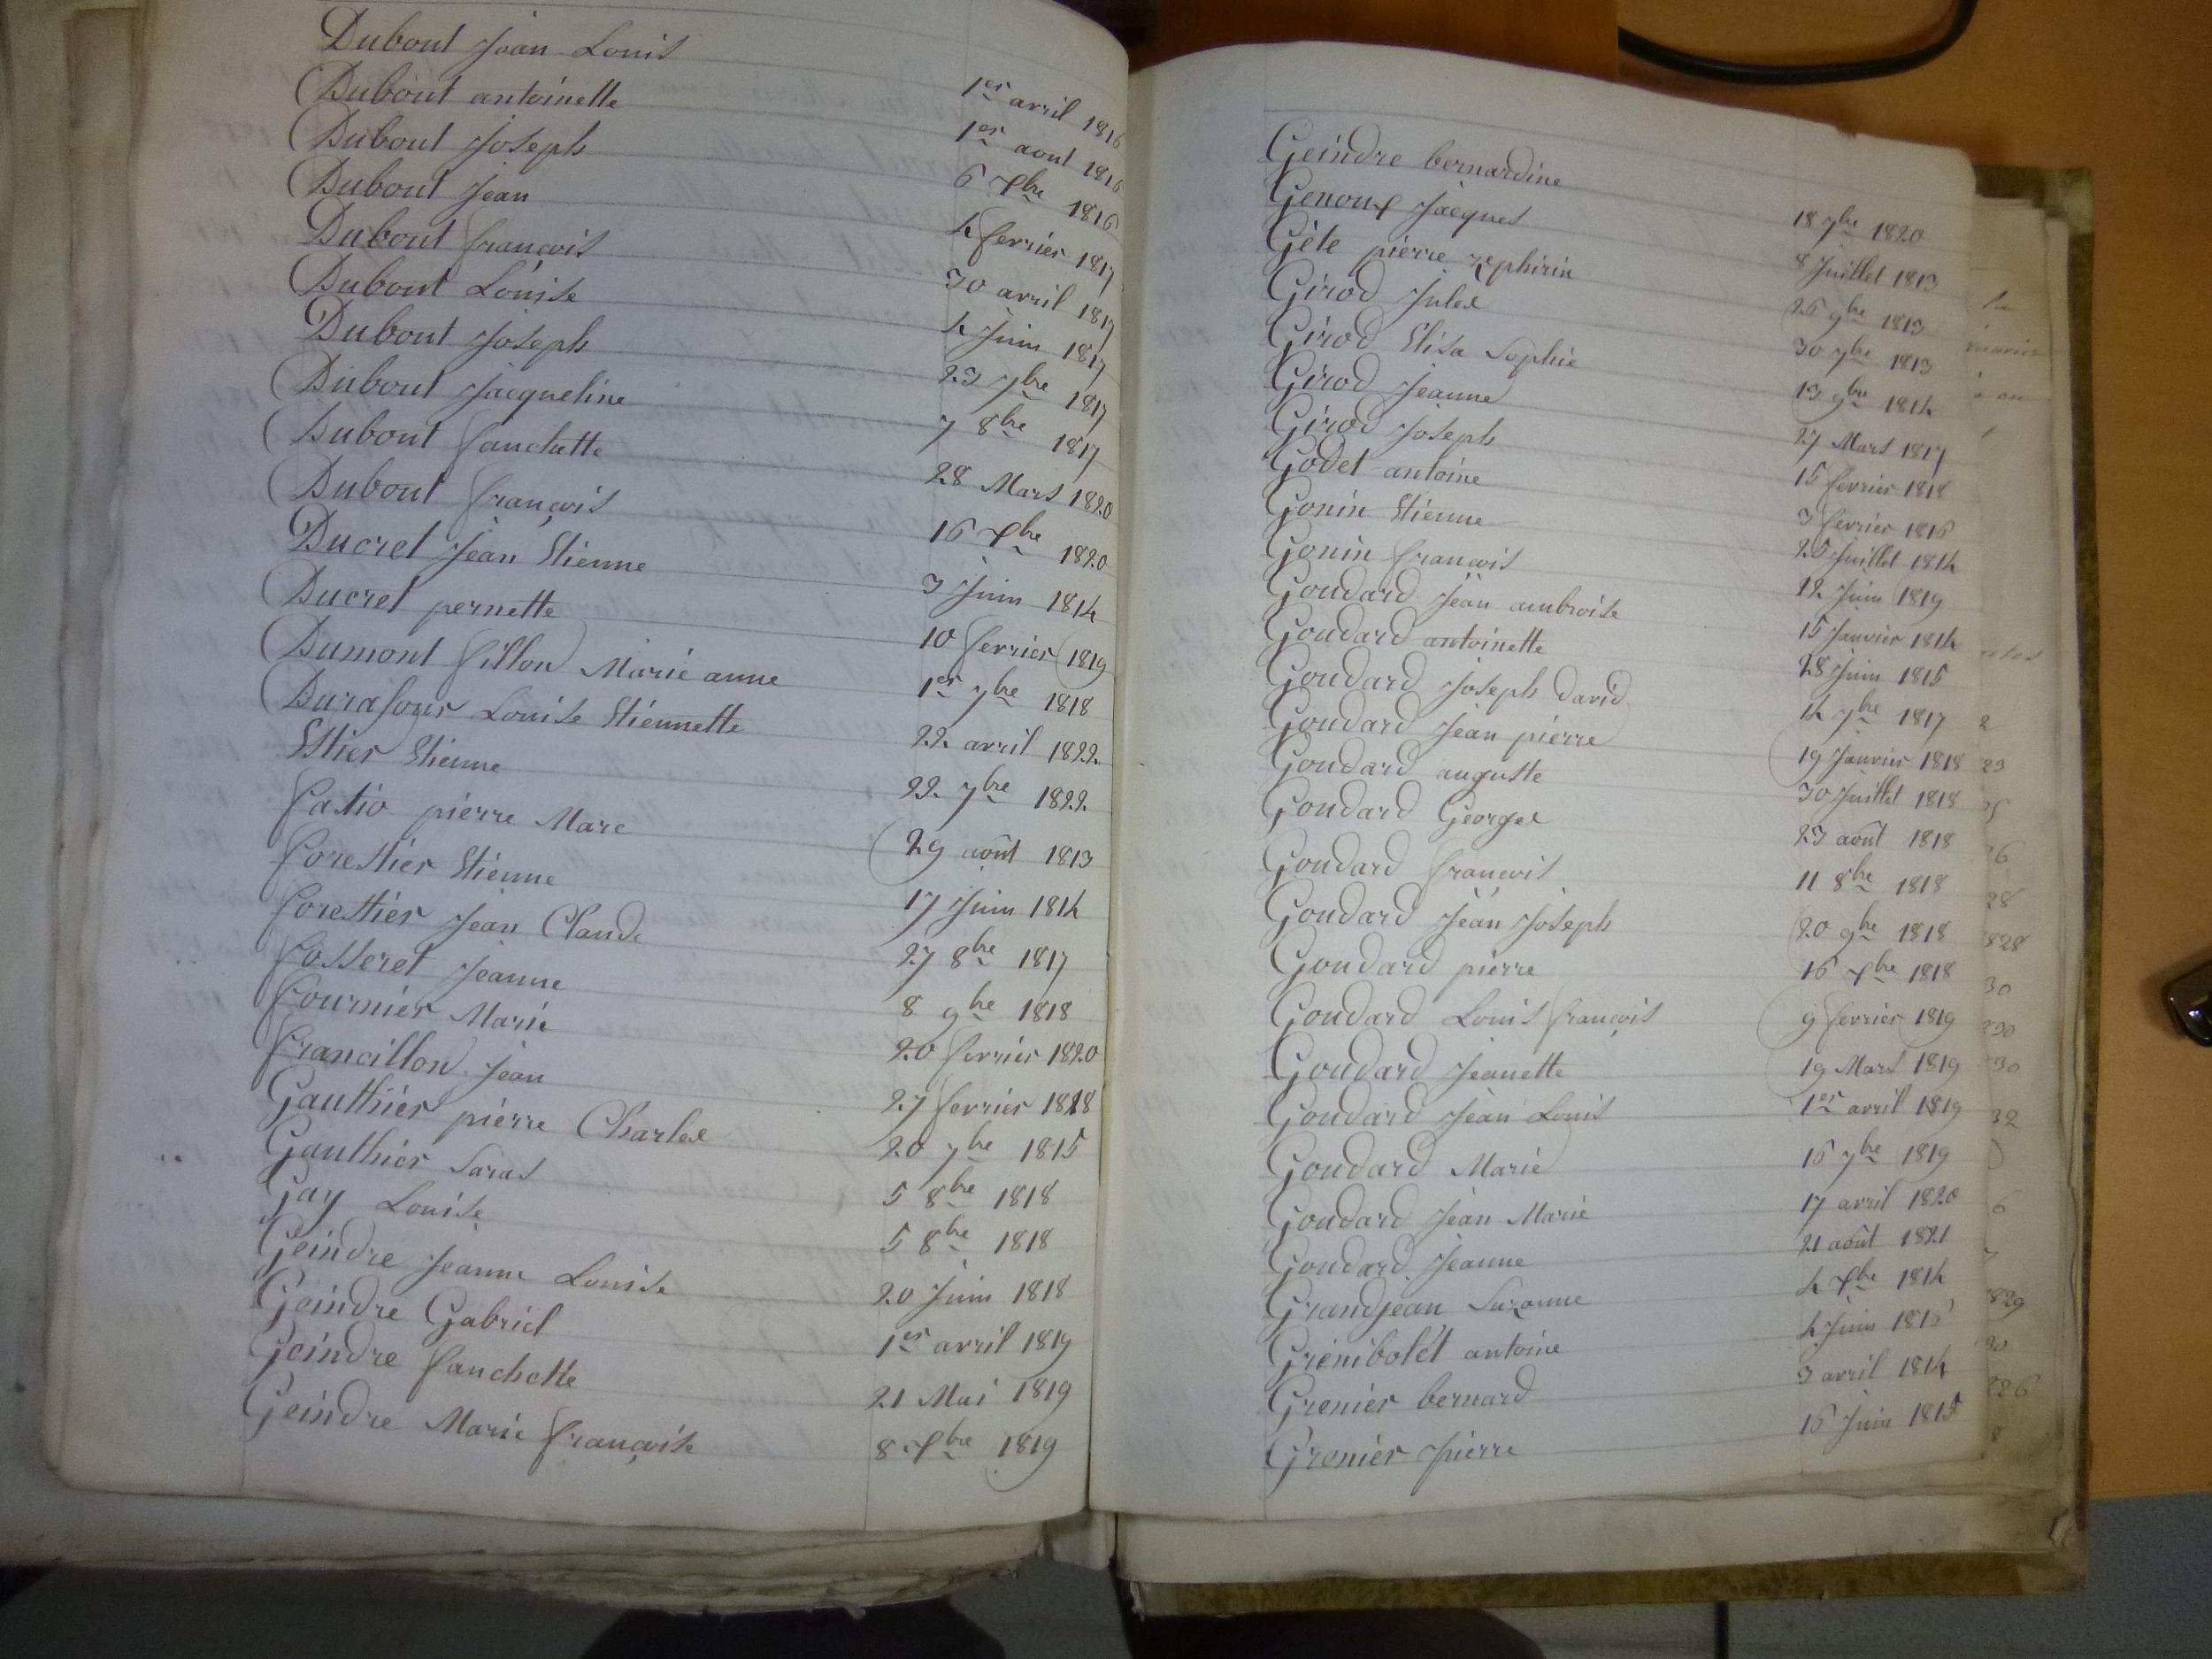 Dubout Jean Louis 1er avril 1816
Dubout antoinette 1er aout 1816
Dubout Joseph 6 Xbre 1816
Dubout Jean 4 fevrier 1817
Dubout françois 30 avril 1817
Dubout Louise 4 Juin 1817
Dubout Joseph 23 7bre 1817
Dubout Jacqueline 7 8bre 1817
Dubout fanchette 28 Mars 1820
Dubout françois 16 Xbre 1820
Ducret Jean Etienne 3 Juin 1814
Ducret pernette 10 fevrier 1819
Dumont fillon Marie anne 1er 7bre 1818
Durafour Louise Etiennette 22 avril 1822
Estier Etienne 22 7bre 1822
fatio pierre Marc 29 août 1813
forestier Etienne 17 Juin 1814
forestier Jean Claude 27 8bre 1817
fosseret Jeanne 8 9bre 1818
fournier Marie 20 fevrier 1820
francillon Jean 27 fevrier 1818
Gauthier pierre Charles 20 7bre 1815
Gauthier Saras 5 8bre 1818
Gay Louise 5 8bre 1818
Geindre Jeanne Louise 20 Juin 1818
Geindre Gabriel 1er avril 1819
Geindre fanchette 21 Mai 1819
Geindre Marie françoise 8 Xbre 1819
Geindre bernardine 18 7bre 1820
Genoux Jacques 8 Juillet 1813
Gète pierre zephirin 26 9bre 1813
Girod Jules 30 7bre 1813
Girod Elisa Sophie 13 9bre 1814
Girod Jeanne 27 Mars 1817
Girod Joseph 15 fevrier 1818
Godet antoine 3 fevrier 1816
Gonin Etienne 25 Juillet 1814
Gonin francois 12 Juin 1819
Goudard Jean ambroise 15 Janvier 1814
Goudard antoinette 28 Juin 1815
Goudard Joseph david 14 7bre 1817
Goudard Jean pierre 19 Janvier 1818
Goudard auguste 30 Juillet 1818
Goudard George 23 août 1818
Goudard francois 11 8bre 1818
Goudard Jean Joseph 20 9bre 1818
Goudard pierre 16 Xbre 1818
Goudard Louis françois 9 fevrier 1819
Goudard Jeanette 19 Mars 1819
Goudard Jean Louis 1er avril 1819
Goudard Marie 16 7bre 1819
Goudard Jean Marie 17 avril 1820
Goudard Jeanne 21 août 1821
Grandjean Suzanne 4 Xbre 1814
Grenibolet antoine 4 Juin 1816
Grenier bernard 3 avril 1814
Grenier pierre 16 Juin 1815